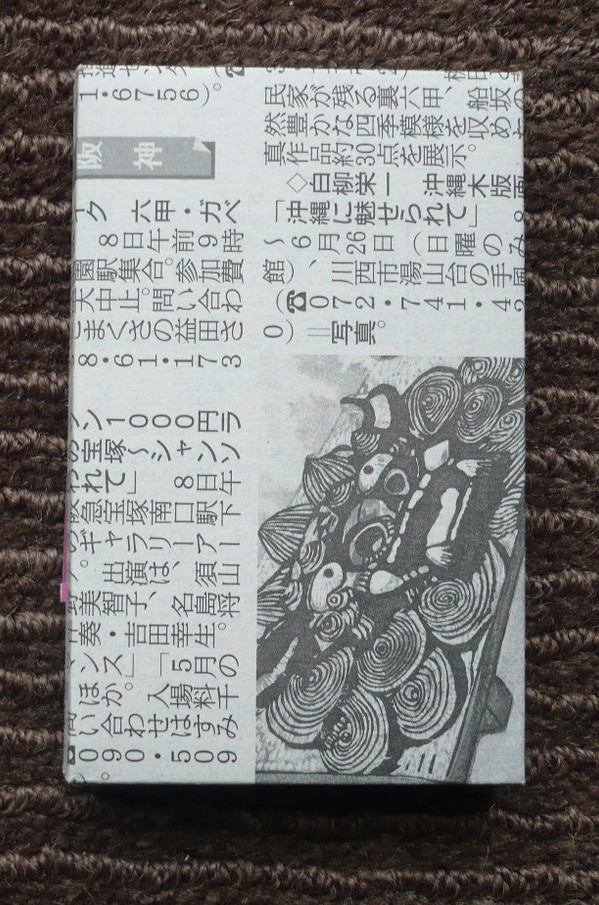 1・6756)。
阪神
ク 六甲・ガベ
8日午前9時
園駅集合。参加費
天中止。問い合わ
こまくさの益田さ
8・61・173
民家が残る裏六甲、船坂の
然豊かな四季模様を収めた
真作品約30点を展示。
◇白柳栄一 沖縄木版画
「沖縄に魅せられて」 8
〜6月26日(日曜のみ
館)、川西市湯山台の手風
(☎072・741・42
0)=写真。
ン1000円ラ
の宝塚〜シャンソ
われて」 8日午
阪急宝塚南口駅下
のギャラリーアー
。出演は、須山
美智子、名島将
奏・吉田幸生。
ンス」「5月の
ほか。入場料千
問い合わせはすみ
☎090・509
)。